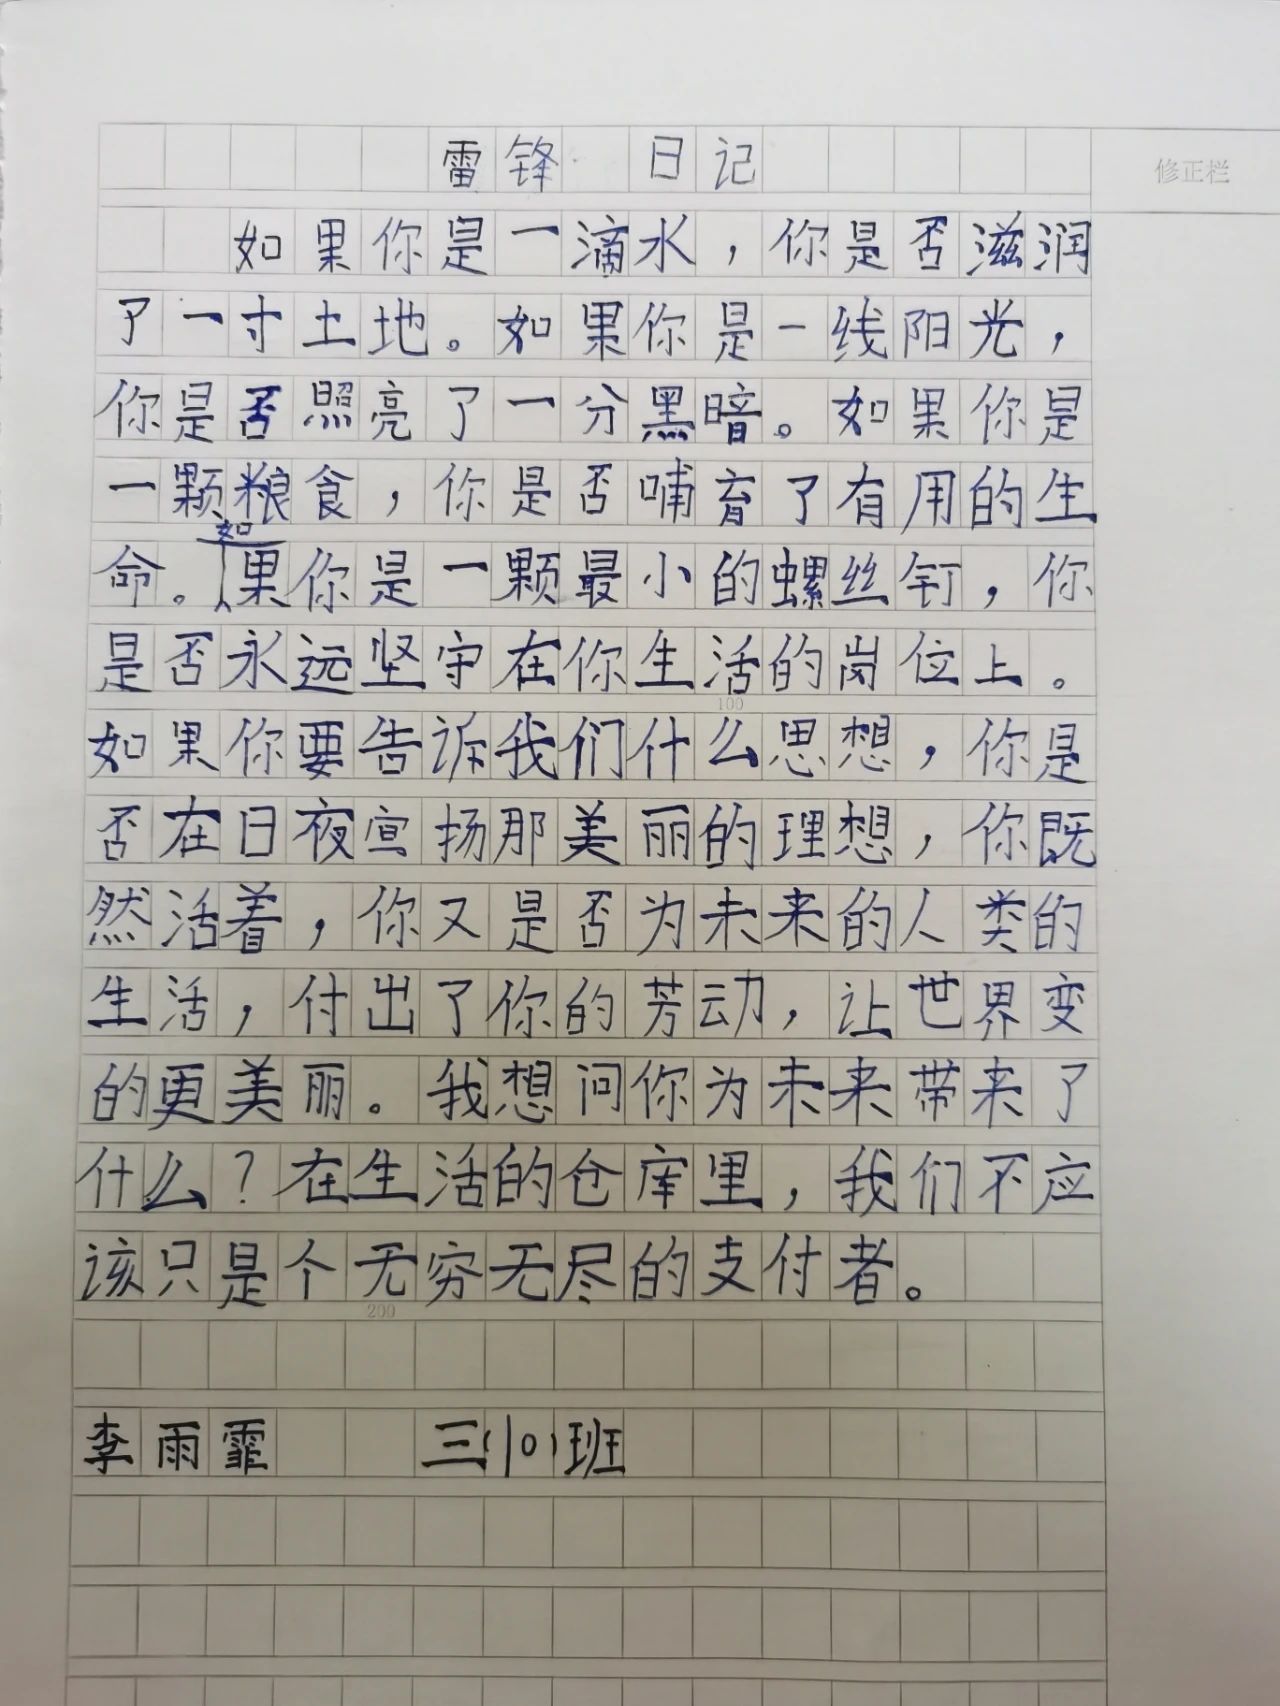 雷锋 日记
修正栏
如果你是一滴水，你是否滋润
了一寸土地。如果你是一线阳光，
你是否照亮了一分黑暗。如果你是
一颗粮食，你是否哺育了有用的生
命。如果你是一颗最小的螺丝钉，你
是否永远坚守在你生活的岗位上。
100
如果你要告诉我们什么思想，你是
否在日夜宣扬那美丽的理想，你既
然活着，你又是否为未来的人类的
生活，付出了你的芳动，让世界变
的更美丽。我想问你为未来带来了
什么？在生活的仓库里，我们不应
该只是个无穷无尽的支付者。
200
李雨霏 三(10)班